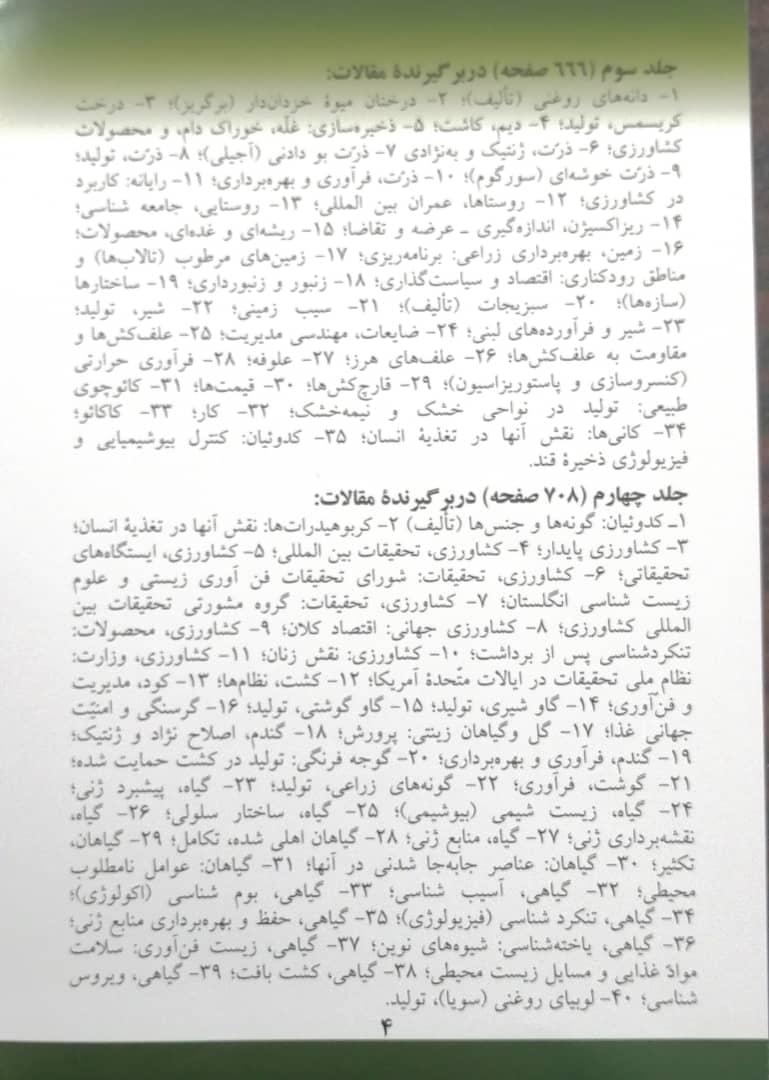 جلد سوم (۶۶۶ صفحه) دربرگیرندهٔ مقالات:
۱- دانه‌های روغنی (تألیف)؛ ۲- درختان میوهٔ خزان‌دار (برگریز)؛ ۳- درخت
کریسمس، تولید؛ ۴- دیم، کاشت؛ ۵- ذخیره‌سازی: غلّه، خوراک دام، و محصولات
کشاورزی؛ ۶- ذرّت، ژنتیک و به‌نژادی ۷- ذرّت بو دادنی (آجیلی)؛ ۸- ذرّت، تولید؛
۹- ذرّت خوشه‌ای (سورگوم)؛ ۱۰- ذرّت، فرآوری و بهره‌برداری؛ ۱۱- رایانه: کاربرد
در کشاورزی؛ ۱۲- روستاها، عمران بین المللی؛ ۱۳- روستایی، جامعه شناسی؛
۱۴- ریزاکسیژن، اندازه‌گیری ـ عرضه و تقاضا؛ ۱۵- ریشه‌ای و غده‌ای، محصولات؛
۱۶- زمین، بهره‌برداری زراعی: برنامه‌ریزی؛ ۱۷- زمین‌های مرطوب (تالاب‌ها) و
مناطق رودکناری: اقتصاد و سیاست‌گذاری؛ ۱۸- زنبور و زنبورداری؛ ۱۹- ساختارها
(سازه‌ها)؛ ۲۰- سبزیجات (تألیف)؛ ۲۱- سیب زمینی؛ ۲۲- شیر، تولید؛
۲۳- شیر و فرآورده‌های لبنی؛ ۲۴- ضایعات، مهندسی مدیریت؛ ۲۵- علف‌کش‌ها و
مقاومت به علف‌کش‌ها؛ ۲۶- علف‌های هرز؛ ۲۷- علوفه؛ ۲۸- فرآوری حرارتی
(کنسروسازی و پاستوریزاسیون)؛ ۲۹- قارچ‌کش‌ها؛ ۳۰- قیمت‌ها؛ ۳۱- کائوچوی
طبیعی: تولید در نواحی خشک و نیمه‌خشک؛ ۳۲- کار؛ ۳۳- کاکائو؛
۳۴- کانی‌ها: نقش آنها در تغذیهٔ انسان؛ ۳۵- کدوئیان: کنترل بیوشیمیایی و
فیزیولوژی ذخیرهٔ قند.
جلد چهارم (۷۰۸ صفحه) دربرگیرندهٔ مقالات:
۱ـ کدوئیان: گونه‌ها و جنس‌ها (تألیف) ۲- کربوهیدرات‌ها: نقش آنها در تغذیهٔ انسان؛
۳- کشاورزی پایدار؛ ۴- کشاورزی، تحقیقات بین المللی؛ ۵- کشاورزی، ایستگاه‌های
تحقیقاتی؛ ۶- کشاورزی، تحقیقات: شورای تحقیقات فن آوری زیستی و علوم
زیست شناسی انگلستان؛ ۷- کشاورزی، تحقیقات: گروه مشورتی تحقیقات بین
المللی کشاورزی؛ ۸- کشاورزی جهانی: اقتصاد کلان؛ ۹- کشاورزی، محصولات:
تنکردشناسی پس از برداشت؛ ۱۰- کشاورزی: نقش زنان؛ ۱۱- کشاورزی، وزارت:
نظام ملی تحقیقات در ایالات متّحدهٔ آمریکا؛ ۱۲- کشت، نظام‌ها؛ ۱۳- کود، مدیریت
و فنّ‌آوری؛ ۱۴- گاو شیری، تولید؛ ۱۵- گاو گوشتی، تولید؛ ۱۶- گرسنگی و امنیّت
جهانی غذا؛ ۱۷- گل وگیاهان زینتی: پرورش؛ ۱۸- گندم، اصلاح نژاد و ژنتیک؛
۱۹- گندم، فرآوری و بهره‌برداری؛ ۲۰- گوجه فرنگی: تولید در کشت حمایت شده؛
۲۱- گوشت، فرآوری؛ ۲۲- گونه‌های زراعی، تولید؛ ۲۳- گیاه، پیشبرد ژنی؛
۲۴- گیاه، زیست شیمی (بیوشیمی)؛ ۲۵- گیاه، ساختار سلولی؛ ۲۶- گیاه،
نقشه‌برداری ژنی؛ ۲۷- گیاه، منابع ژنی؛ ۲۸- گیاهان اهلی شده، تکامل؛ ۲۹- گیاهان،
تکثیر؛ ۳۰- گیاهان: عناصر جابه‌جا شدنی در آنها؛ ۳۱- گیاهان: عوامل نامطلوب
محیطی؛ ۳۲- گیاهی، آسیب شناسی؛ ۳۳- گیاهی، بوم شناسی (اکولوژی)؛
۳۴- گیاهی، تنکرد شناسی (فیزیولوژی)؛ ۳۵- گیاهی، حفظ و بهره‌برداری منابع ژنی؛
۳۶- گیاهی، یاخته‌شناسی: شیوه‌های نوین؛ ۳۷- گیاهی، زیست فن‌آوری: سلامت
موادّ غذایی و مسایل زیست محیطی؛ ۳۸- گیاهی، کشت بافت؛ ۳۹- گیاهی، ویروس
شناسی؛ ۴۰- لوبیای روغنی (سویا)، تولید.
۴